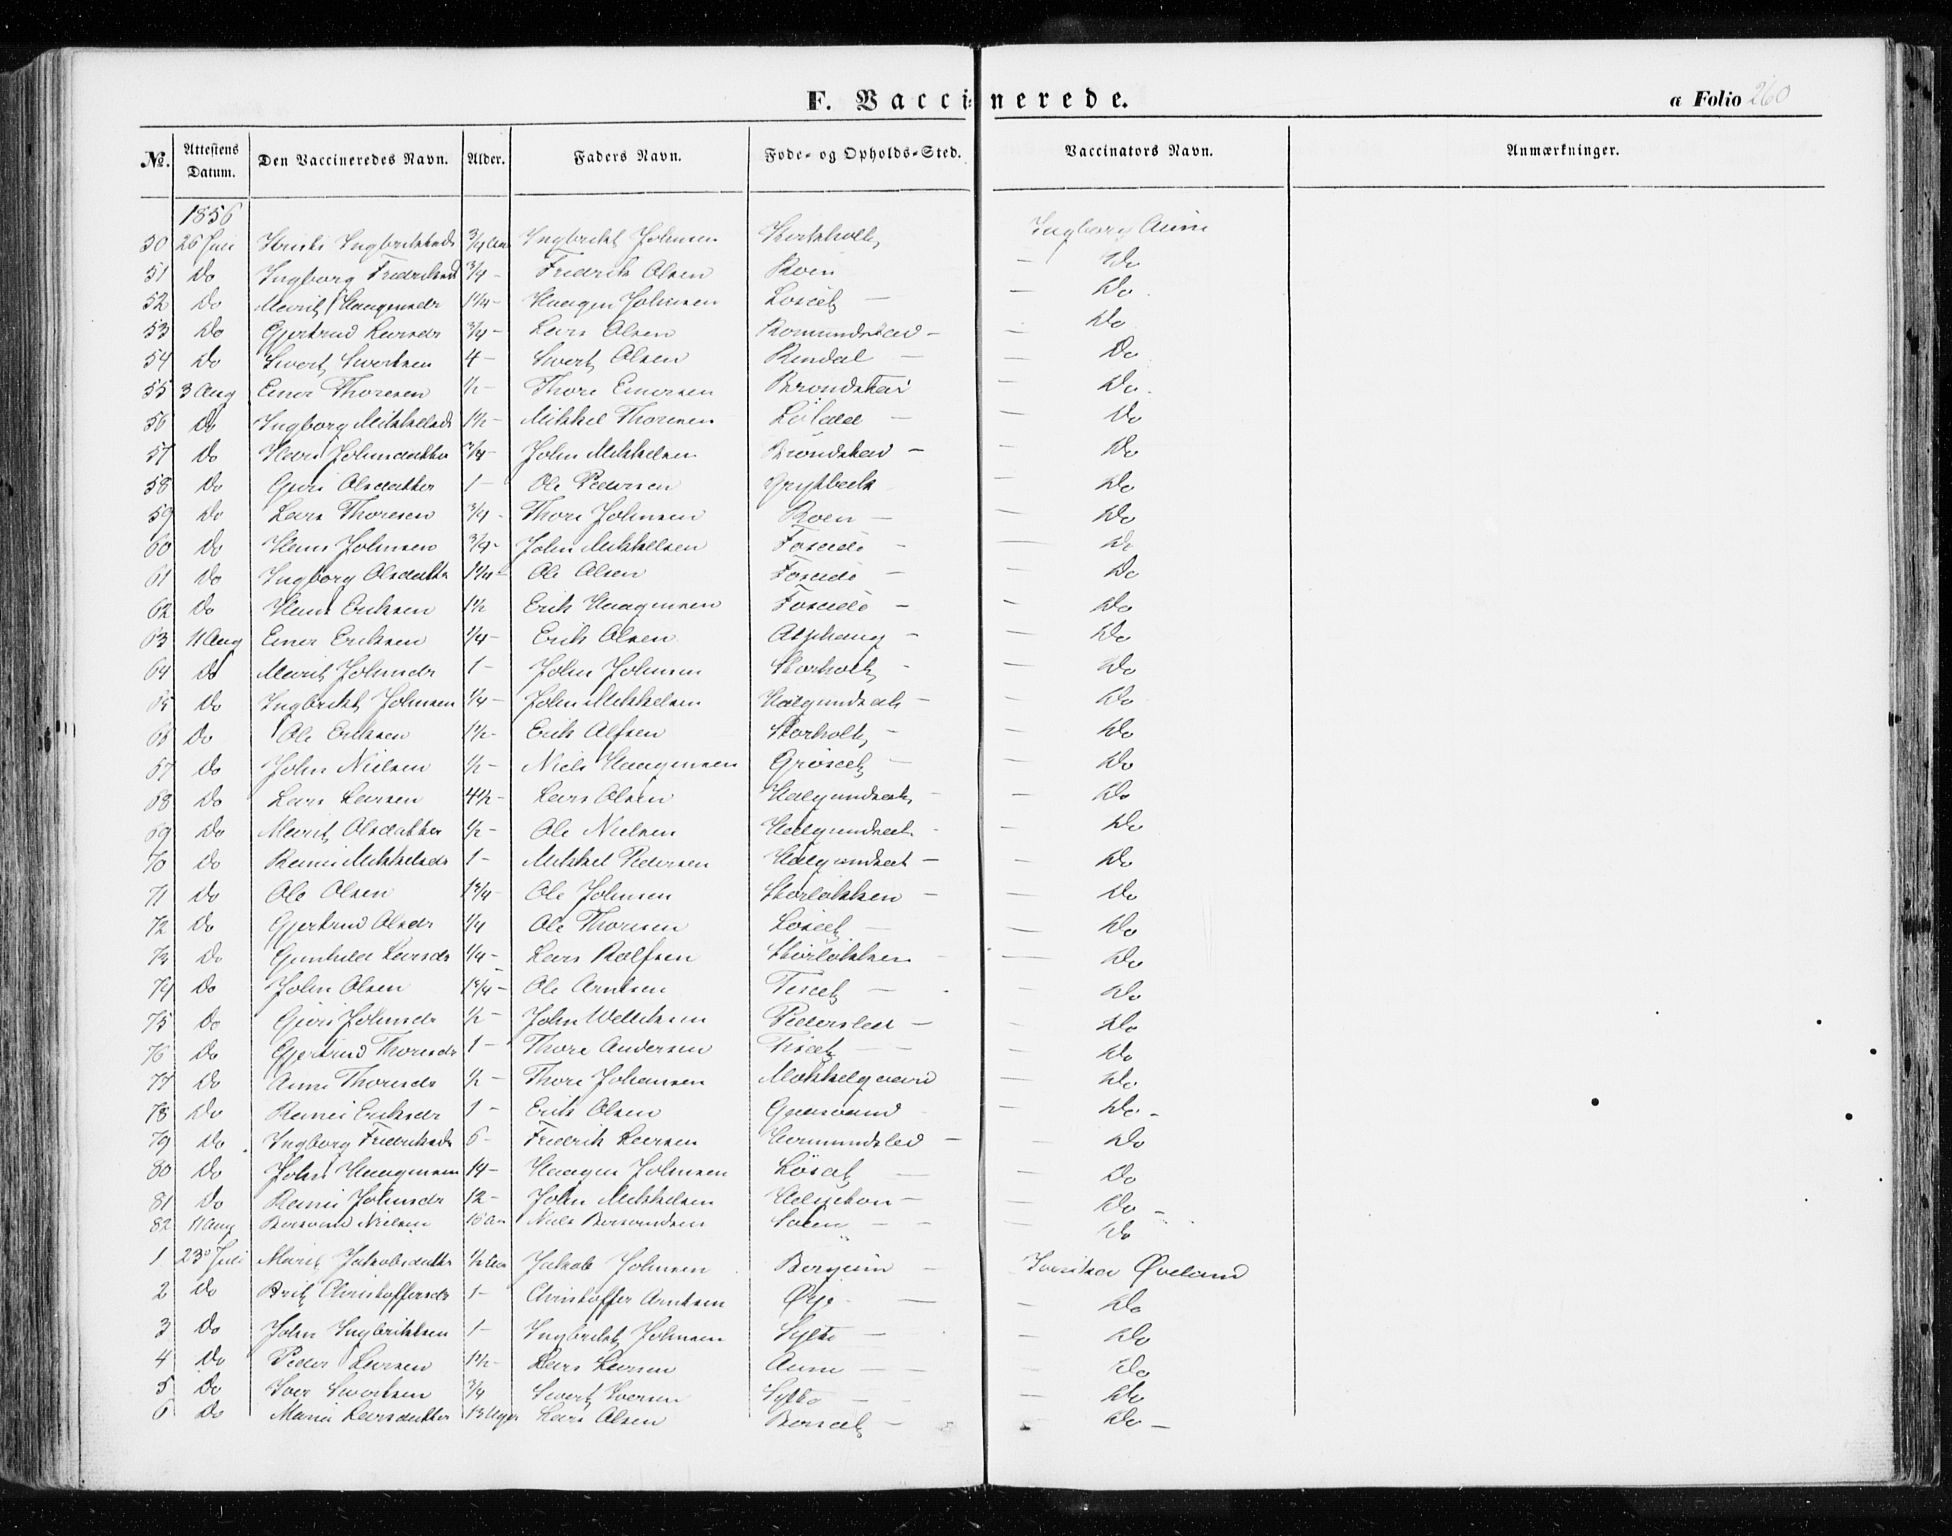 F. Vaccinerede.
a Folio 260
No. Attestens Datum. Den Vaccineredes Navn. Alder. Faders Navn. Føde- og Opholds-Sted. Vaccinators Navn. Anmærkninger.
1856
50 26 Juli Ingbriktsd 3/4 Aar Ingbrikt Johnsen Storholt Ingborg Aune
51 Do Ingborg Fredriksd 3/4 - Fredrik Olsen Roen — Do
52 Do Marit Haagensdr 1 1/4 - Haagen Johnsen Loseet — — Do
53 Do Gjertrud Larsdr 3/4 - Lars Olsen Romundstad — Do
54 Do Sivert Sivertsen 4 - Sivert Olsen Rendal — — Do
55 3 Aug Einer Thoresen 1/2 - Thore Einersen Brøndskar — Do
56 Do Ingborg Mikkelsd 1 1/2 - Mikkel Thoresen — — Do
57 Do Johnsdatter 3/4 - John Mikkelsen Brøndskar — — Do
58 Do Guri Olsdatter 1 - Ole Pedersen — Do
59 Do Lars Thoresen 3/4 - Thore Johnsen Roen — — Do
60 Do Hans Johnsen 3/4 - John Mikkelsen Foseide — — Do
61 Do Ingborg Olsdatter 1 1/4 - Ole Olsen Foseide — — Do
62 Do Hans Eriksen 1 1/2 Erik Haagensen Foseide — — Do
63 11 Aug Einer Eriksen 1/4 - Erik Olsen — — Do
64 Do Marit Johnsdr 1 - John Johnsen Storholt — — Do
65 Do Ingbrikt Johnsen 1/4 - John Mikkelsen Halgundseet — — Do
66 Do Ole Eriksen 1 1/2 - Erik Alfsen Storholt — — Do
67 Do John Nielsen 1/2 - Niels Haagensen Grøseet — — Do
68 Do Lars Larsen 4 1/2 - Lars Olsen Halgundseet — — Do
69 Do Marit Olsdatter 1/2 - Ole Nielsen Halgundseet — — Do
70 Do Mikkelsdr 1 - Mikkel Pedersen Halgundseet — — Do
71 Do Ole Olsen 1 3/4 - Ole Johnsen Storløkken — — Do
72 Do Gjertrud Olsdr 1/4 Ole Thoresen Loseet — — Do
73 Do Gunhild Larsdr 1/4 - Lars Rolfsen Storløkken — — Do
74 Do John Olsen 1 3/4 - Ole Arntsen Tiseet — — Do
75 Do Guri Johnsdr 1/2 - John Pedersled — — Do
76 Do Gjertrud Thoresdr 1 - Thore Andersen Tiseet — — Do
77 Do Anne Thoresdr 1/2 - Thore Johansen Mokkelgaard — Do
78 Do Eriksdr 1 - Erik Olsen Gaasvand — Do —
79 Do Ingborg Fredriksdr 6 - Fredrik Larsen — — Do
80 Do John Haagensen 14 - Haagen Johnsen Løseet — — Do
81 Do Johnsdr 12 - John Mikkelsen — — Do —
82 11 Aug Nielsen 10 Aar Niels — — Do
1 23 Juli Marit Jakobsdatter 1/2 Aar Jakob Johnsen Bergum — Øveland
2 Do Brit Christoffersdr 1 - Christoffer Arntsen Øye — — Do
3 Do John Ingbriktsen 1 - Ingbrikt Johnsen Sylte — — Do
4 Do Peder Larsen 1 1/2 - Lars Larsen Aune — — Do
5 Do Iver Sivertsen 3/4 Sivert Iversen Sylte — — Do
6 Do Larsdatter 13 Uger Lars Olsen Børseet — — Do —